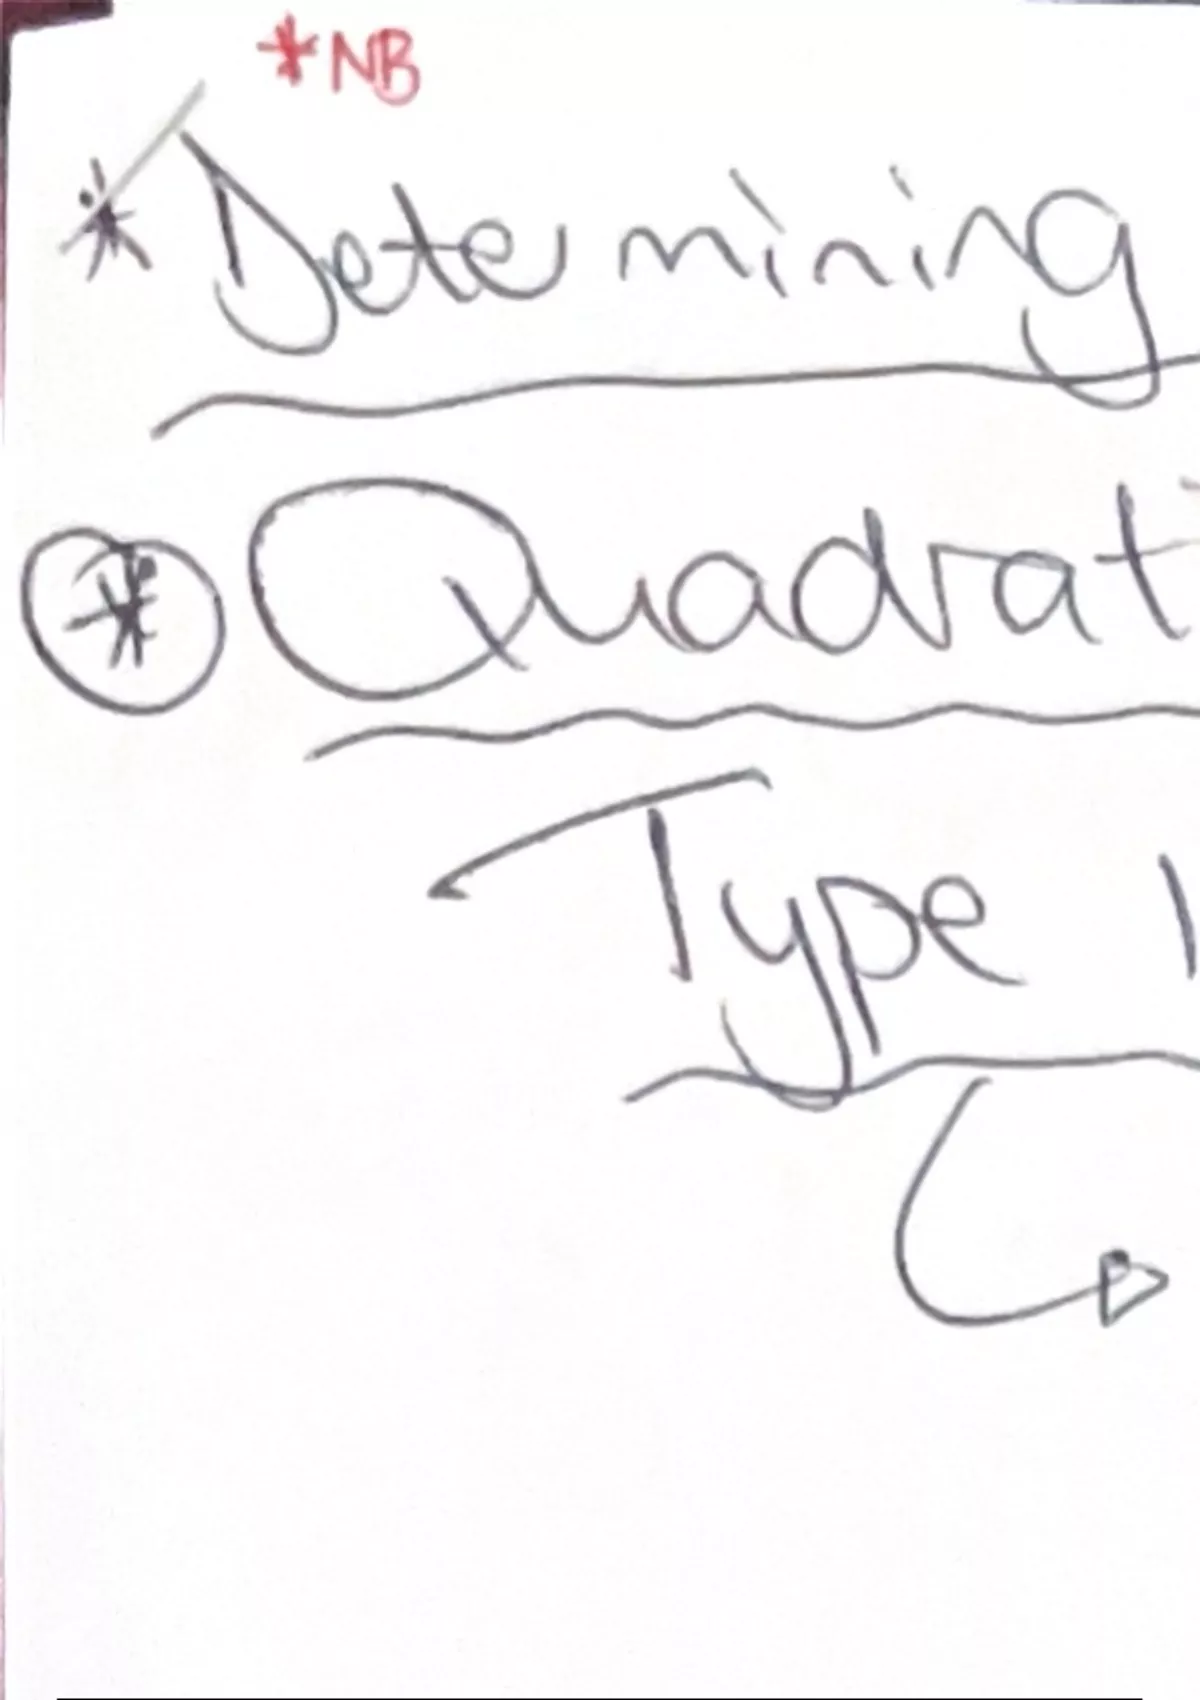 *NB
* Determining
* Quadrat
Type 1